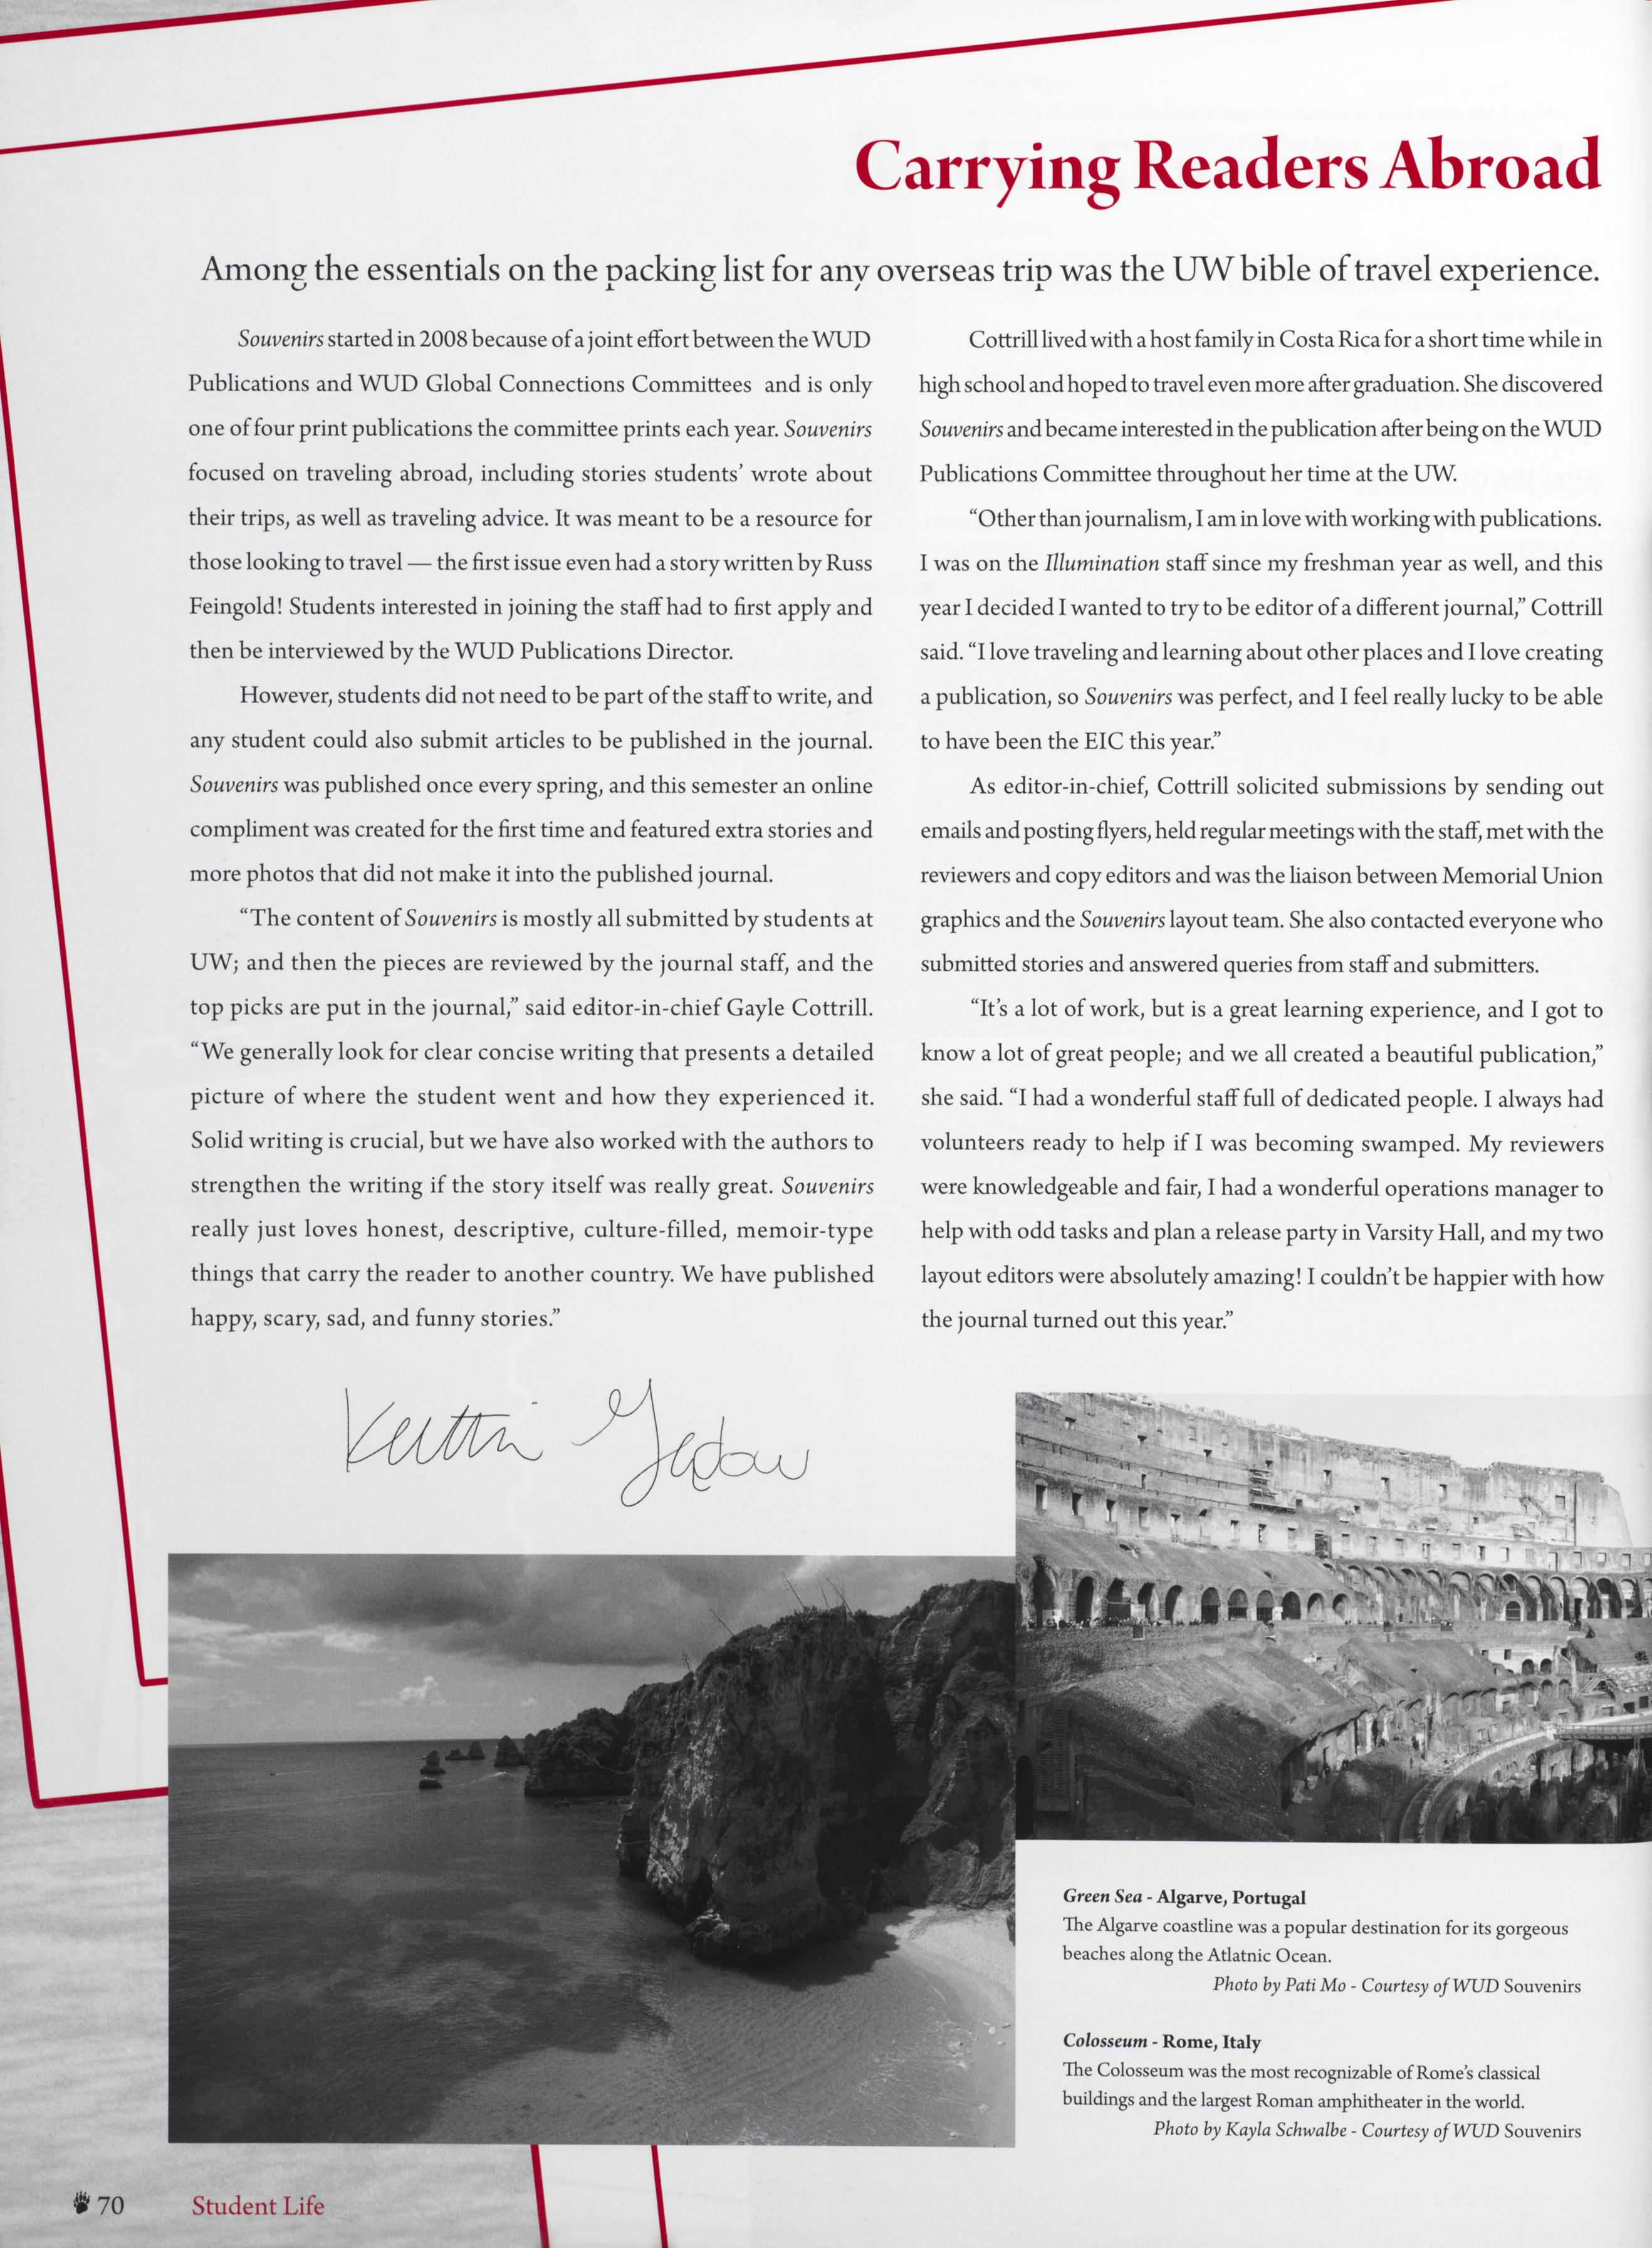 Carrying Readers Abroad
Among the essentials on the packing list for any overseas trip was the UW bible of travel experience.
Souvenirs started in 2008 because of a joint effort between the WUD
Publications and WUD Global Connections Committees and is only
one of four print publications the committee prints each year. Souvenirs
focused on traveling abroad, including stories students’ wrote about
their trips, as well as traveling advice. It was meant to be a resource for
those looking to travel — the first issue even had a story written by Russ
Feingold! Students interested in joining the staff had to first apply and
then be interviewed by the WUD Publications Director.
However, students did not need to be part of the staff to write, and
any student could also submit articles to be published in the journal.
Souvenirs was published once every spring, and this semester an online
compliment was created for the first time and featured extra stories and
more photos that did not make it into the published journal.
“The content of Souvenirs is mostly all submitted by students at
UW; and then the pieces are reviewed by the journal staff, and the
top picks are put in the journal,” said editor-in-chief Gayle Cottrill.
“We generally look for clear concise writing that presents a detailed
picture of where the student went and how they experienced it.
Solid writing is crucial, but we have also worked with the authors to
strengthen the writing if the story itself was really great. Souvenirs
really just loves honest, descriptive, culture-filled, memoir-type
things that carry the reader to another country. We have published
happy, scary, sad, and funny stories.”
Cottrill lived with a host family in Costa Rica for a short time while in
high school and hoped to travel even more after graduation. She discovered
Souvenirs and became interested in the publication after being on the WUD
Publications Committee throughout her time at the UW.
“Other than journalism, I am in love with working with publications.
I was on the Illumination staff since my freshman year as well, and this
year I decided I wanted to try to be editor of a different journal,” Cottrill
said. “I love traveling and learning about other places and I love creating
a publication, so Souvenirs was perfect, and I feel really lucky to be able
to have been the EIC this year.”
As editor-in-chief, Cottrill solicited submissions by sending out
emails and posting flyers, held regular meetings with the staff, met with the
reviewers and copy editors and was the liaison between Memorial Union
graphics and the Souvenirs layout team. She also contacted everyone who
submitted stories and answered queries from staff and submitters.
“It’s a lot of work, but is a great learning experience, and I got to
know a lot of great people; and we all created a beautiful publication,”
she said. “I had a wonderful staff full of dedicated people. I always had
volunteers ready to help if I was becoming swamped. My reviewers
were knowledgeable and fair, I had a wonderful operations manager to
help with odd tasks and plan a release party in Varsity Hall, and my two
layout editors were absolutely amazing! I couldn’t be happier with how
the journal turned out this year.”
Green Sea - Algarve, Portugal
The Algarve coastline was a popular destination for its gorgeous
beaches along the Atlatnic Ocean.
Photo by Pati Mo - Courtesy of WUD Souvenirs
Colosseum - Rome, Italy
The Colosseum was the most recognizable of Rome’s classical
buildings and the largest Roman amphitheater in the world.
Photo by Kayla Schwalbe - Courtesy of WUD Souvenirs
70 Student Life